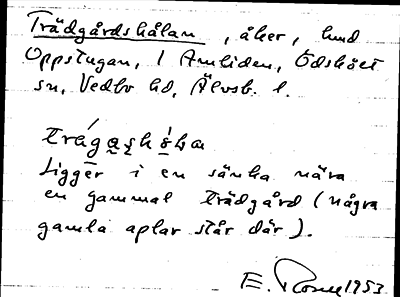 Trädgårdshålan, åker, hmd
Oppstugan, 1 Amliden, Ödskölt
sn, Vedbo hd, Älvsb. l.
Ligger i en sänka nära
en gammal trädgård (några
gamla aplar står där).
E. 1953